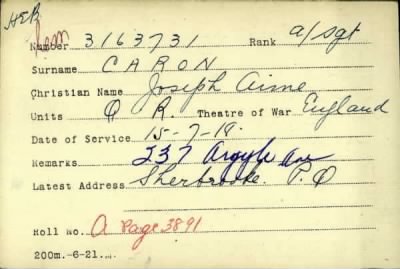 HER
Rem
Number 3163731 Rank a/sgt
Surname CARON
Christian Name Joseph Aime
Units Q R. Theatre of War England
Date of Service 15-7-18.
Remarks 237 Argyle Ave
Latest Address Sherbrooke P.Q
Roll No. A Page 3891
200m.-6-21.